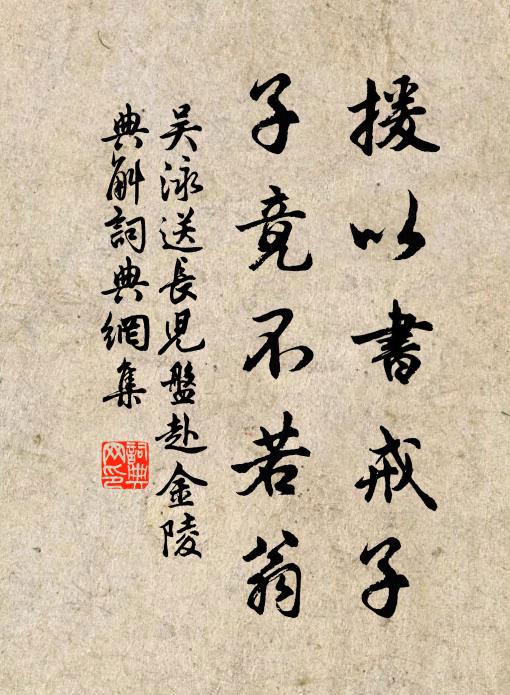 援以書戒子
子竟不若翁
吴泳送長児盤赴金陵
典斛詞典網集
詞典網印